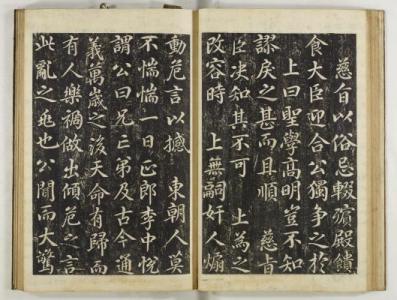 慈旨以俗忌輟殯殿饋
食大臣卬合公獨爭之於
上曰聖學高明豈不知
謬戾之甚而且順 慈旨
臣決知其不可 上為之
改容時 上無嗣奸人煽
動危言以撼 東朝人莫
不惴惴一日正郎李中悅
謂公曰兄亡弟及古今通
義萬歲之後天命有歸而
有人樂禍做出傾危之言
此亂之兆也公聞而大驚